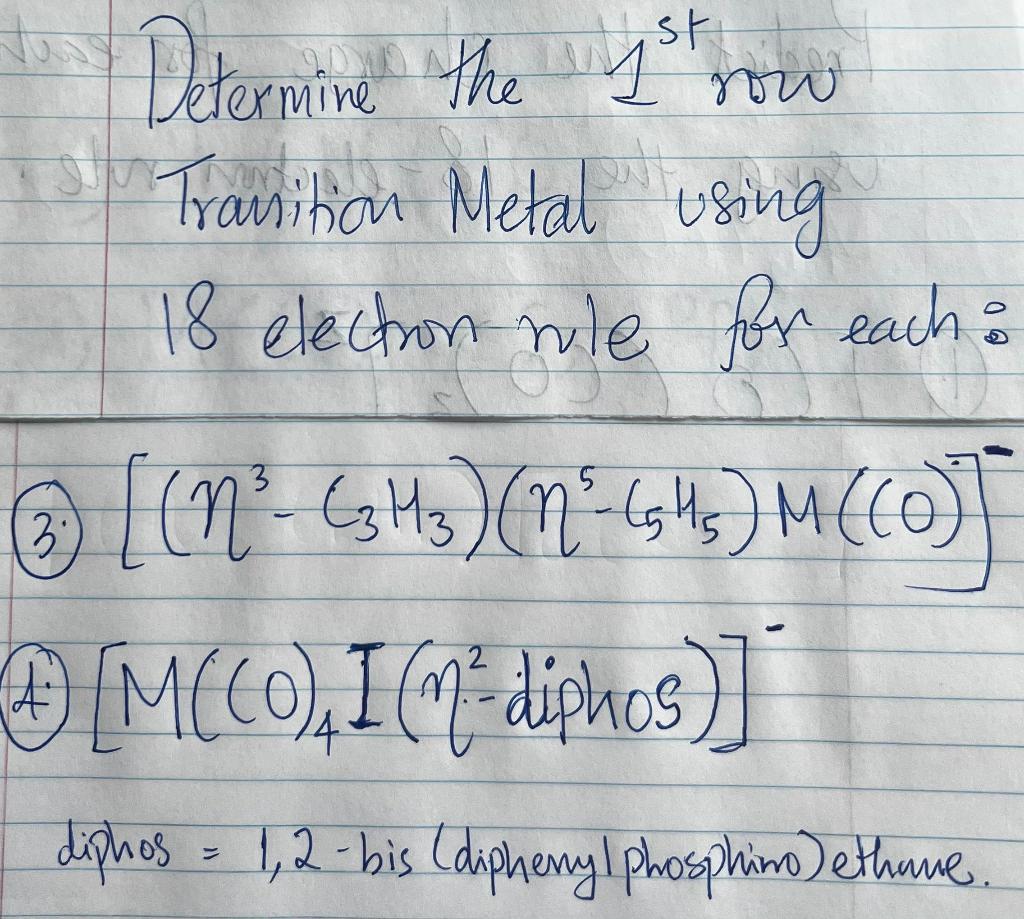 Determine the 1st row
Transition Metal using
18 electron rule for each:
3. [(η³-C₃H₃)(η⁵-C₅H₅)M(CO)]⁻
4. [M(CO)₄I(η²-diphos)]⁻
diphos = 1,2-bis(diphenylphosphino)ethane.